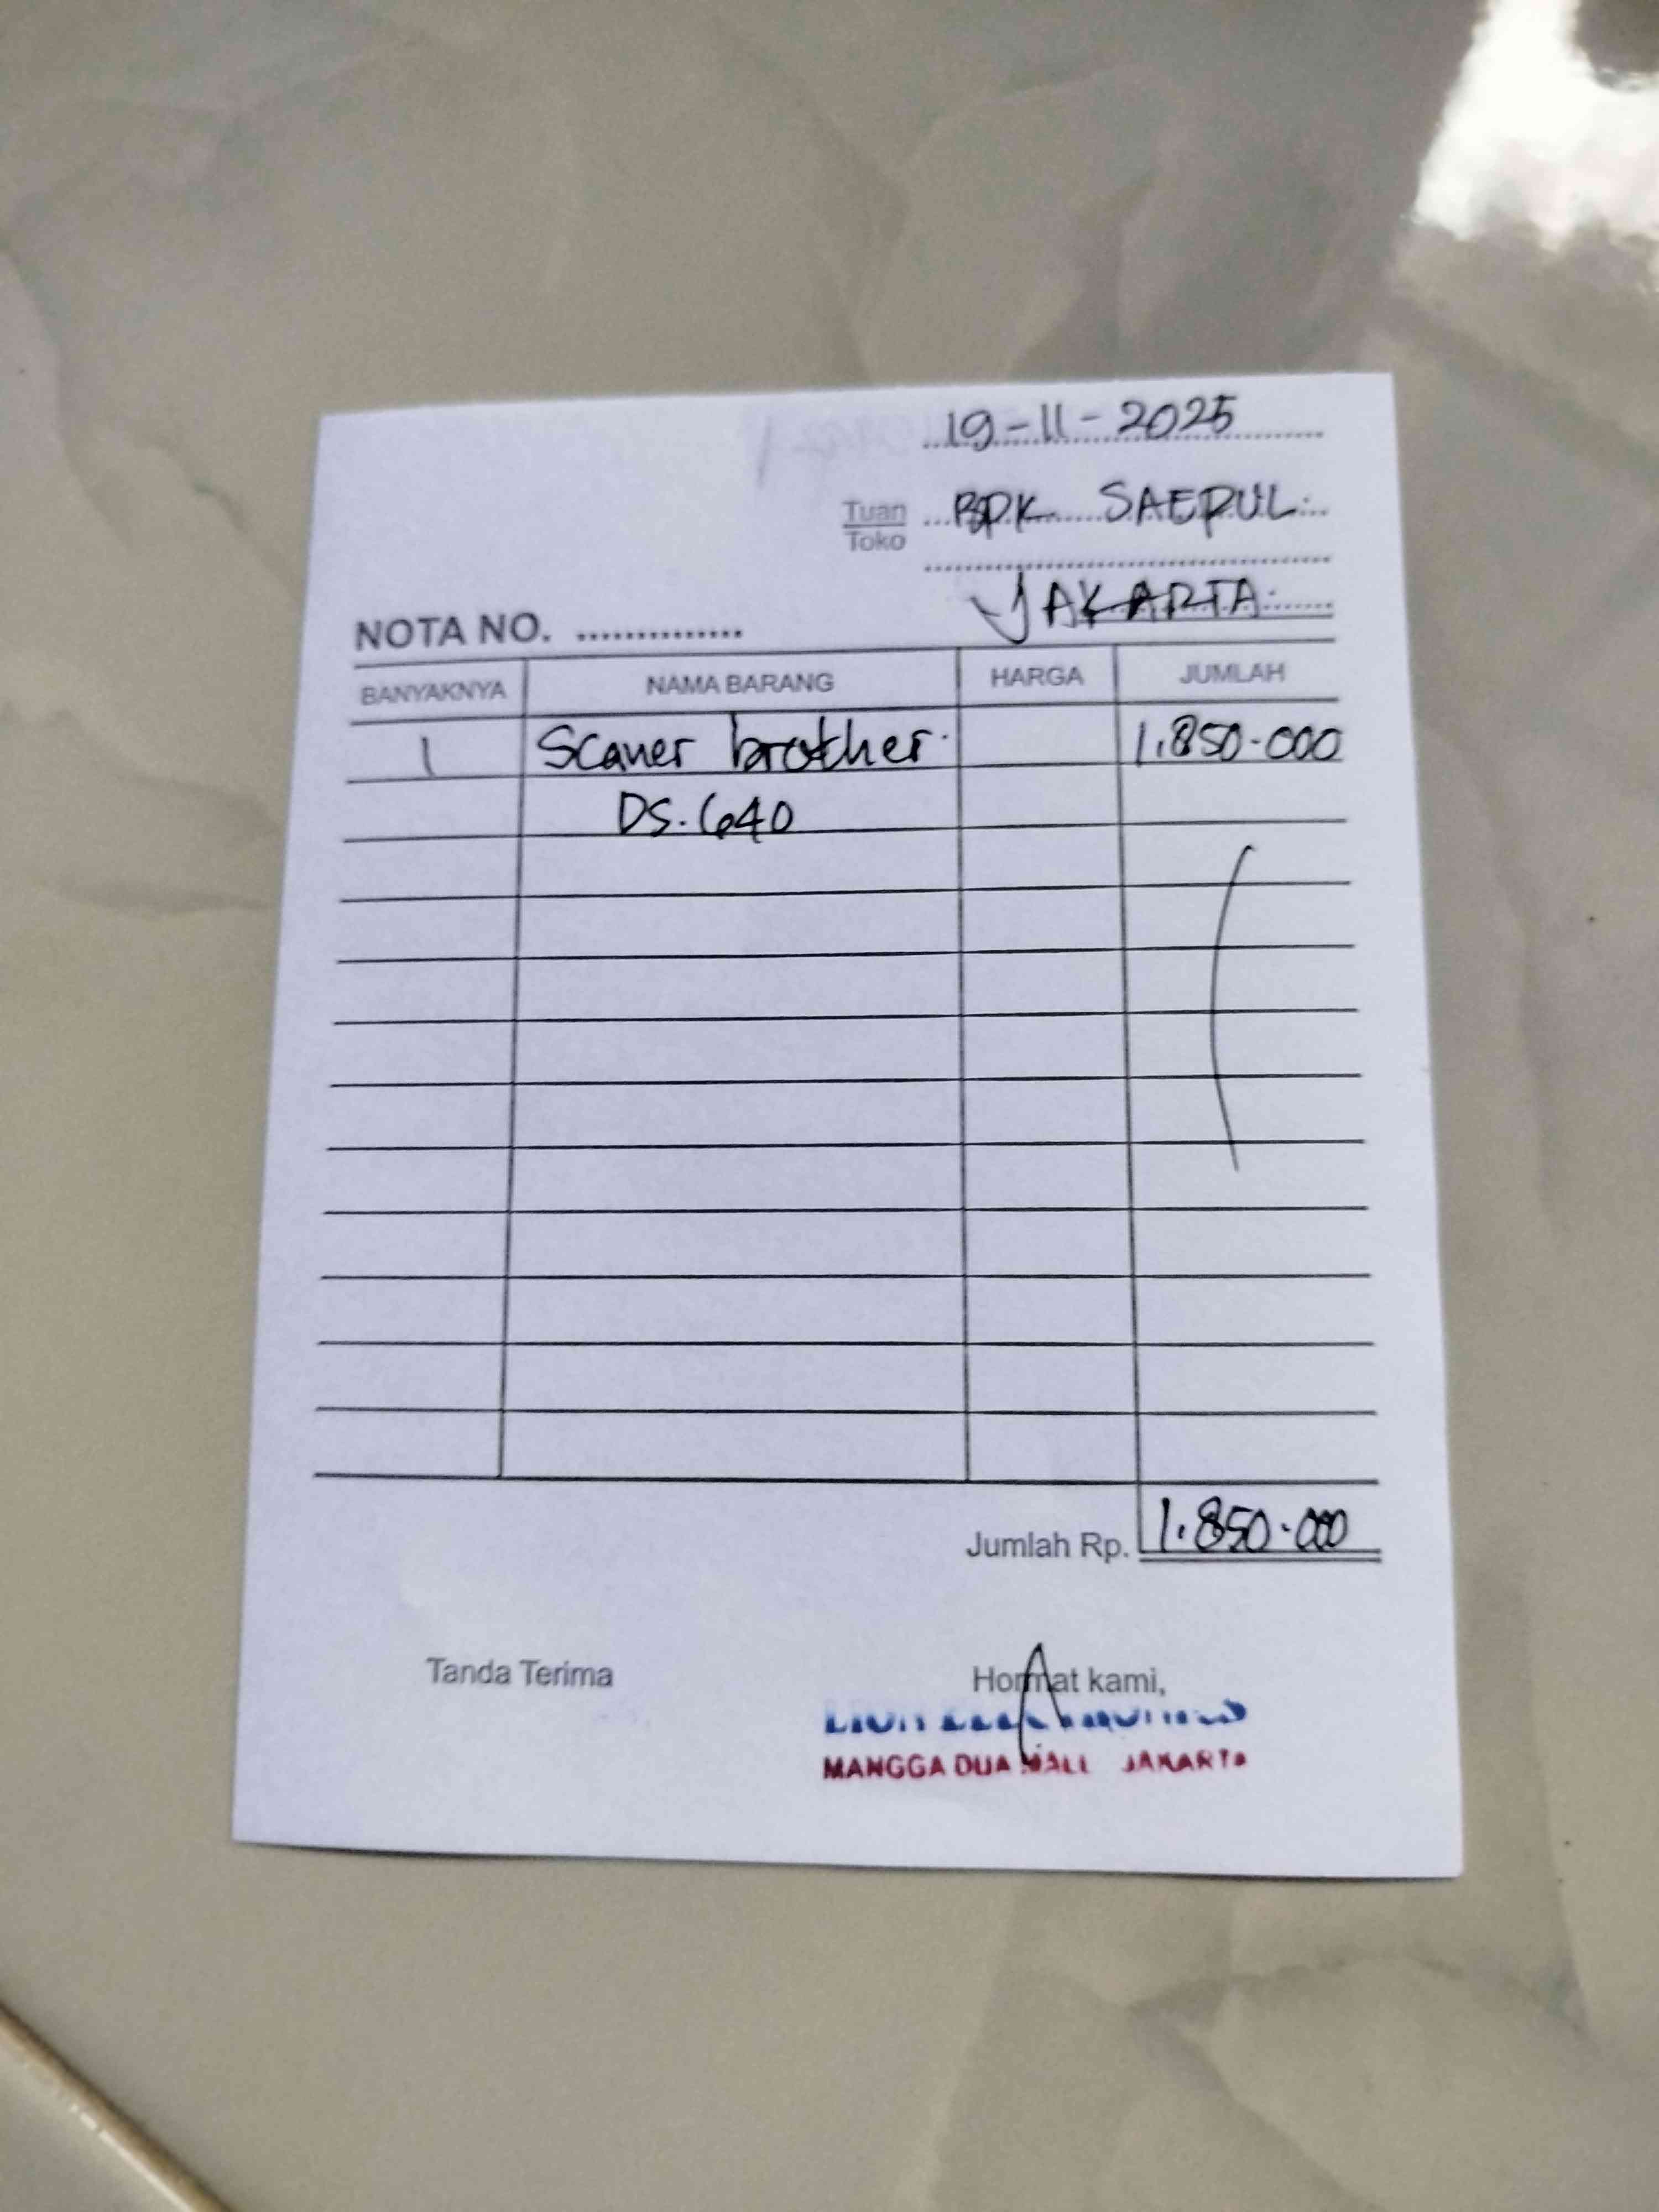 19-11-2025
Tuan BPK SAEPUL
Toko
JAKARTA
NOTA NO. ...............
BANYAKNYA NAMA BARANG HARGA JUMLAH
1 Scaner brother 1.850.000
DS.640
Jumlah Rp. 1.850.000
Tanda Terima Hormat kami,
MANGGA DUA MALL JAKARTA